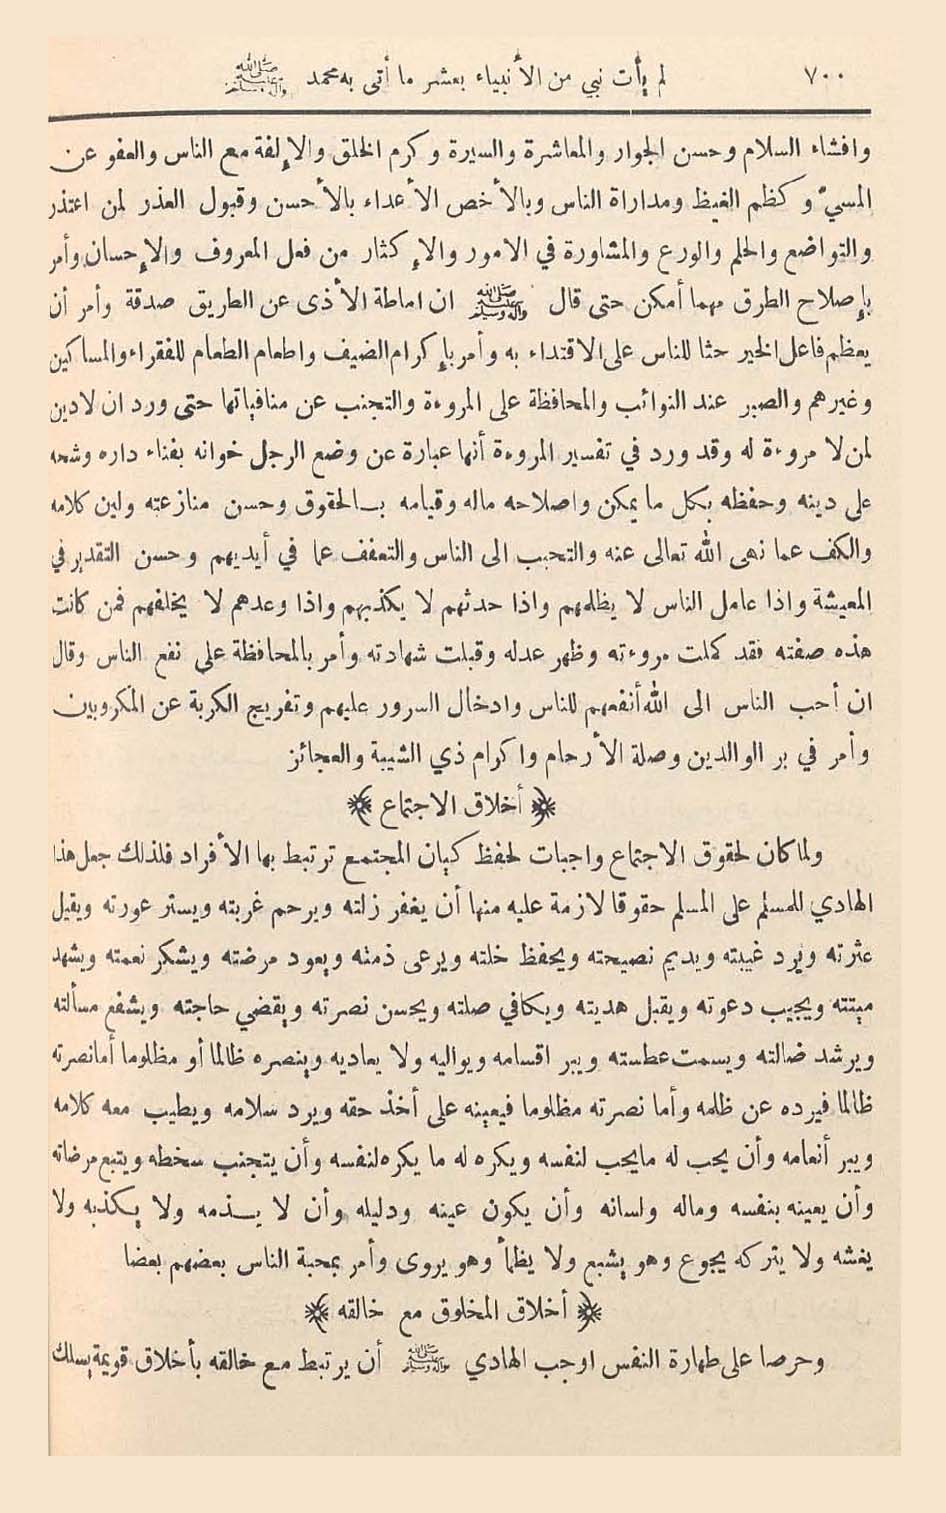 ٧٠٠
لم يأت نبي من الأنبياء بعشر ما أتى به محمد صلى الله عليه وآله وسلم
وافشاء السلام وحسن الجوار والمعاشرة والسيرة وكرم الخلق والإلفة مع الناس والعفو عن
المسيء وكظم الغيظ ومداراة الناس وبالأخص الأعداء بالأحسن وقبول العذر لمن اعتذر
والتواضع والحلم والورع والمشاورة في الامور والإكثار من فعل المعروف والإحسان وأمر
بإصلاح الطرق مهما أمكن حتى قال صلى الله عليه وآله وسلم ان اماطة الأذى عن الطريق صدقة وأمر أن
يعظم فاعل الخير حثا للناس على الاقتداء به وأمر بإكرام الضيف واطعام الطعام للفقراء والمساكين
وغيرهم والصبر عند النوائب والمحافظة على المروءة والتجنب عن منافياتها حتى ورد ان لا دين
لمن لا مروءة له وقد ورد في تفسير المروءة أنها عبارة عن وضع الرجل خوانه بفناء داره وشحه
على دينه وحفظه بكل ما يمكن واصلاحه ماله وقيامه بالحقوق وحسن منازعته ولين كلامه
والكف عما نهى الله تعالى عنه والتحبب الى الناس والتعفف عما في أيديهم وحسن التقدير في
المعيشة واذا عامل الناس لا يظلمهم واذا حدثهم لا يكذبهم واذا وعدهم لا يخلفهم فمن كانت
هذه صفته فقد كملت مروءته وظهر عدله وقبلت شهادته وأمر بالمحافظة على نفع الناس وقال
ان أحب الناس الى الله أنفعهم للناس وادخال السرور عليهم وتفريج الكربة عن المكروبين
وأمر في بر الوالدين وصلة الأرحام واكرام ذي الشيبة والعجائز
﴿ أخلاق الاجتماع ﴾
ولما كان لحقوق الاجتماع واجبات لحفظ كيان المجتمع ترتبط بها الأفراد فلذلك جعل هذا
الهادي للمسلم على المسلم حقوقا لازمة عليه منها أن يغفر زلته ويرحم غربته ويستر عورته ويقيل
عثرته ويرد غيبته ويديم نصيحته ويحفظ خلته ويرعى ذمته ويعود مرضته ويشكر نعمته ويشهد
ميتته ويجيب دعوته ويقبل هديته ويكافي صلته ويحسن نصرته ويقضي حاجته ويشفع مسألته
ويرشد ضالته ويسمت عطسته ويبر اقسامه ويواليه ولا يعاديه وينصره ظالما أو مظلوما أما نصرته
ظالما فيرده عن ظلمه وأما نصرته مظلوما فيعينه على أخذ حقه ويرد سلامه ويطيب معه كلامه
ويبر أنعامه وأن يحب له ما يحب لنفسه ويكره له ما يكره لنفسه وأن يتجنب سخطه ويتبع مرضاته
وأن يعينه بنفسه وماله ولسانه وأن يكون عينه ودليله وأن لا يذمه ولا يكذبه ولا
يغشه ولا يتركه يجوع وهو يشبع ولا يظمأ وهو يروى وأمر بمحبة الناس بعضهم بعضا
﴿ أخلاق المخلوق مع خالقه ﴾
وحرصا على طهارة النفس اوجب الهادي صلى الله عليه وآله وسلم أن يرتبط مع خالقه بأخلاق قويمة يسلك